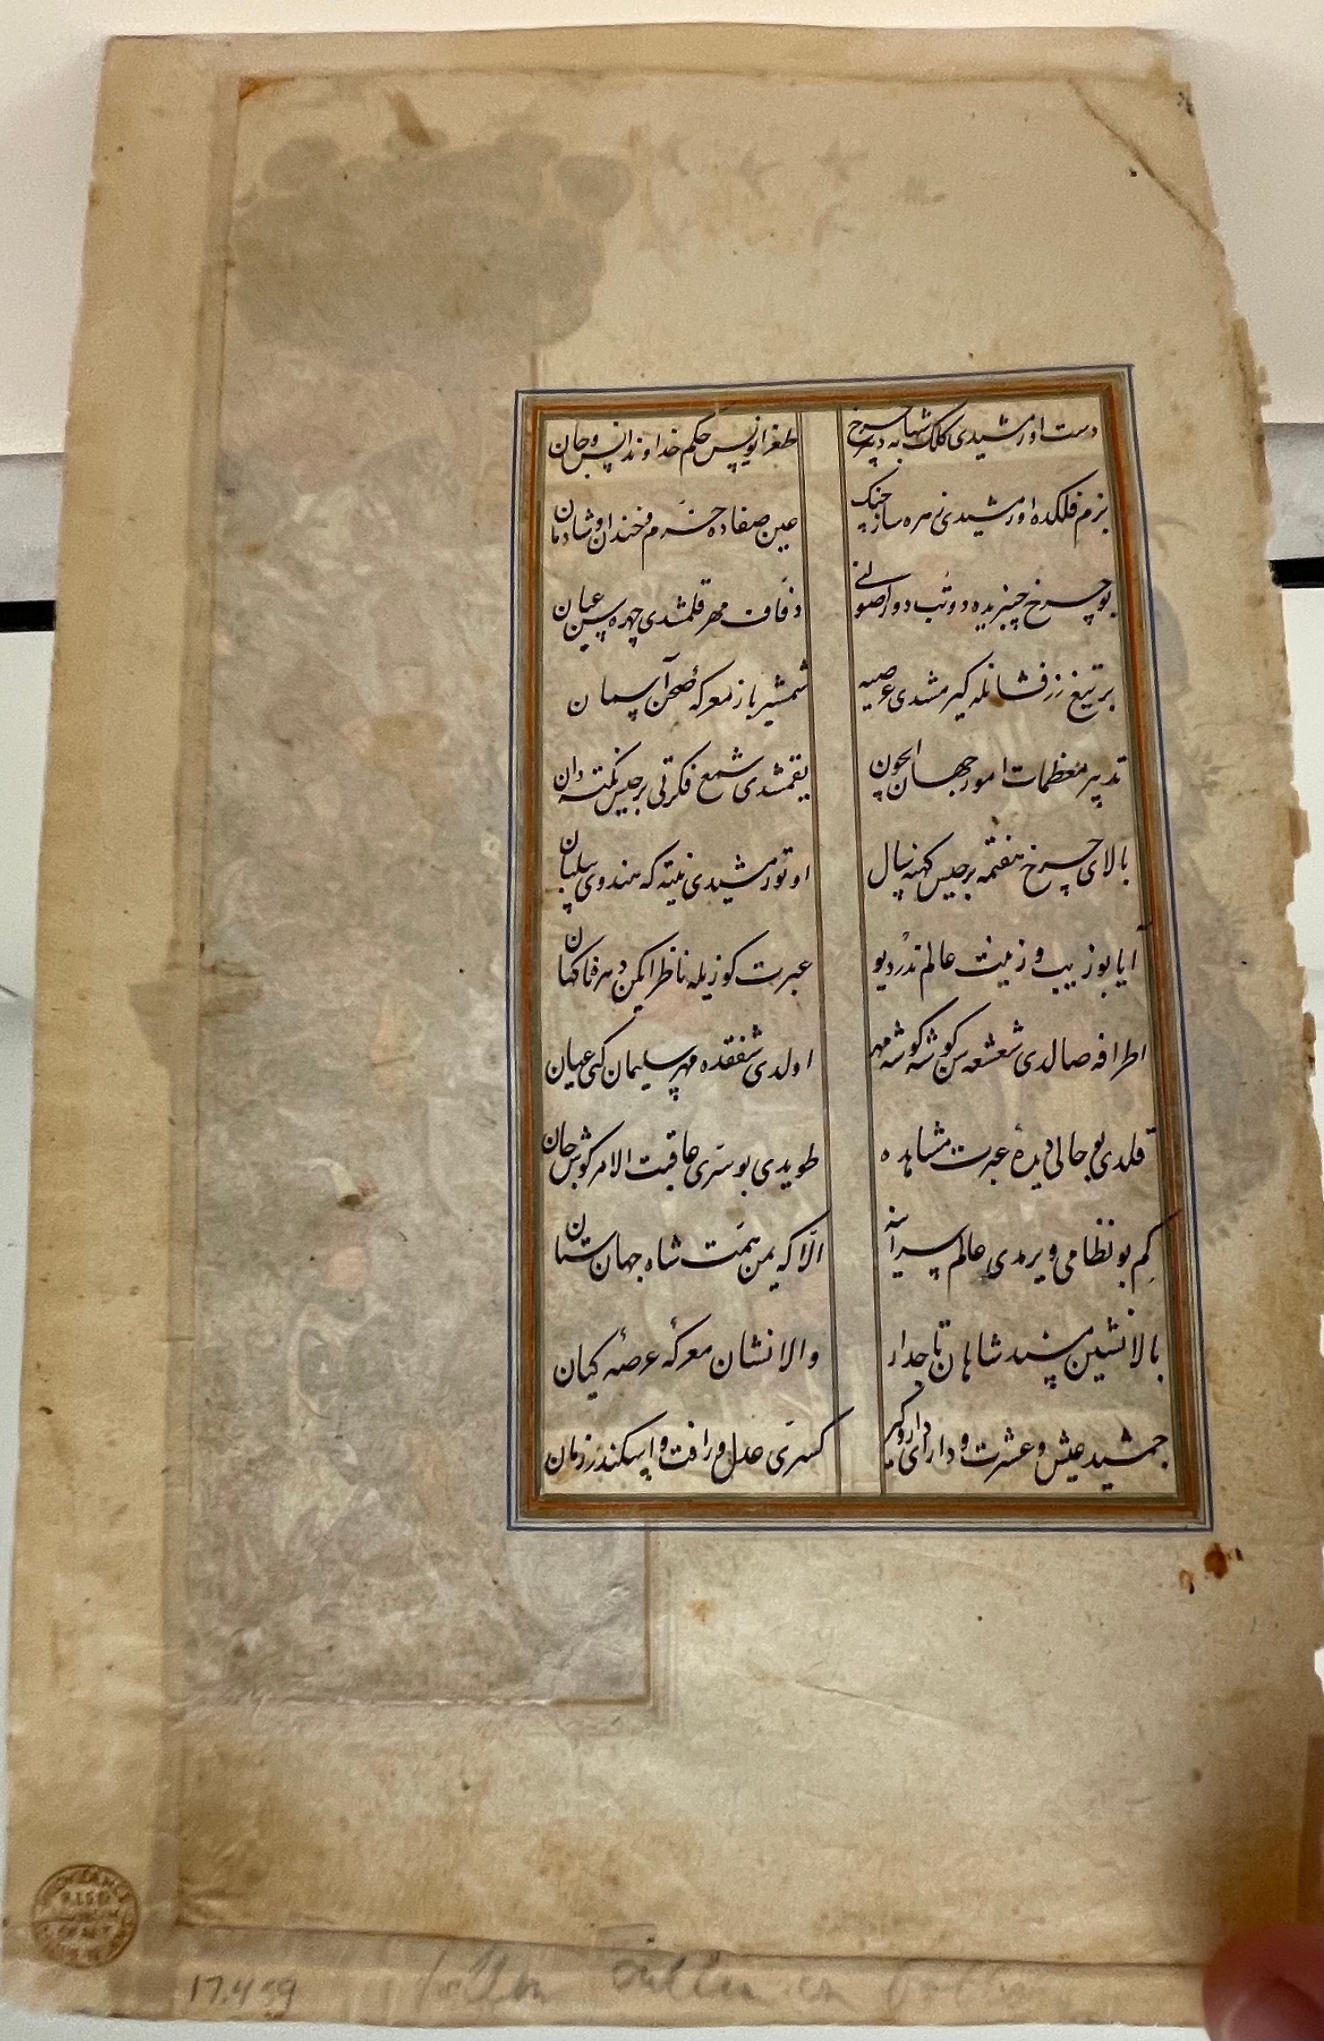 دست اورمشیدی کلک شهابه دبیر چرخ
طغرانویس حکم خداوند انس و جان
بزم فلکده اورمشیدی زهره ساز چنک
عین صفاده خرم و خندان و شادمان
بو چرخ چنبریده دوتب دور اصولنی
دفاف مهر قلمشدی چهره سین عیان
بر تیغ زرفشانله کیرمشدی عرصیه
شمشیرباز معرکهٔ صحن آسمان
تدبیر معظمات امور جهان ایچون
یقمشدی شمع فکرتی برجیس نکته دان
بالای چرخ هفتمه برجیس کهنه سال
اوتورمشیدی نیته که هندوی پیلبان
آیا بو زیب و زینت عالم ندر دیو
عبرت کوزیله ناظر ایکن دهره ناکهان
اطرافه صالدی شعشعه سن کوشه کوشه مهر
اولدی شفقده مهر سلیمان کبی عیان
قلدی بو حالی دیدهٔ عبرت مشاهده
طویدی بو سری عاقبت الامر کوش جان
کم بو نظامی ویرمدی عالم سراینه
الا که یمن همت شاه جهان ستان
بالانشین مسند شاهان تاجدار
والانشان معرکهٔ عرصهٔ کیان
جمشید عیش و عشرت و دارای دار و کیر
کسری عدل و رافت و اسکندر زمان
17.459